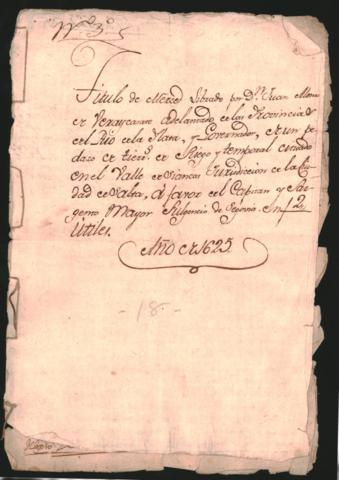 N.º 3.º
Titulo de Merced Librado por D.n Juan Alons
de Veraycarate Adelantado de las Provincias
del Rio de la Plata, y Governador, de un pe
daco de tierr.s de Riego y temporal cituado
en el Valle de Siancas Jurisdiccion de la Ciu
dad de Salta, á favor del Capitan y Sar
gento Mayor en 12
Utiles.
Año de 1625.
- 18. -